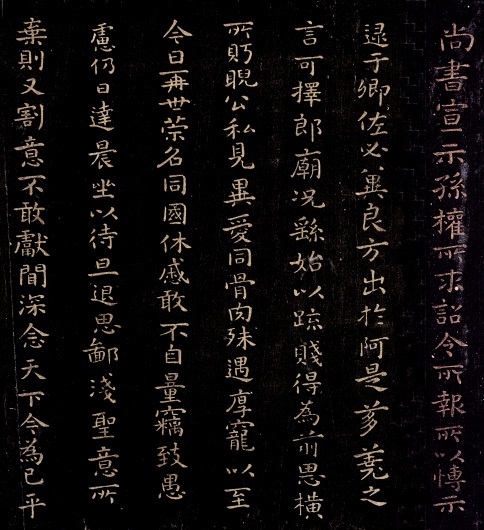 尚書宣示孫權所求詔令所報所以博示
逮于卿佐必冀良方出於阿是芻蕘之
言可擇郎廟況繇始以疏賤得為前恩橫
所盻睨公私見異愛同骨肉殊遇厚寵以至
今日再世榮名同國休慼敢不自量竊致愚
慮仍日達晨坐以待旦退思鄙淺聖意所
棄則又割意不敢獻聞深念天下今為已平